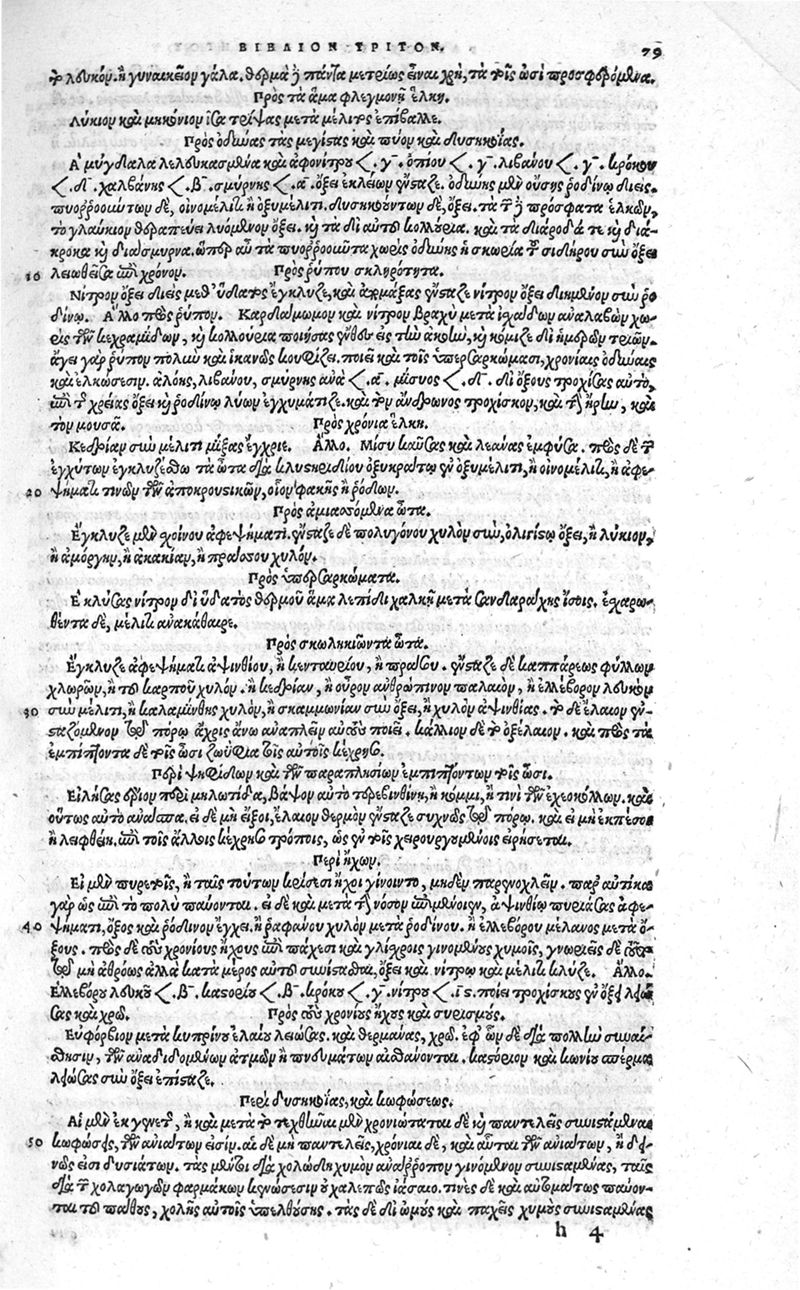 ΒΙΒΛΙΟΝ ΤΡΙΤΟΝ. 79
λευκόν. ἢ γυναικεῖον γάλα. θερμὰ δὲ πάντα μετρίως εἶναι χρὴ, τὰ τοῖς ὠσὶ προσφερόμενα.
Πρὸς τὰ ἅμα φλεγμονῇ ἕλκη.
Λύκιον καὶ μηκώνιον ἶσα τρίψας μετὰ μέλιτος ἐπίβαλλε.
Πρὸς ὀδύνας τὰς μεγίστας καὶ πύον καὶ δυσηκοΐας.
Ἀμύγδαλα λελευκασμένα καὶ ἀφρονίτρου <. γ̄. ὀπίου <. γ̄. λιβάνου <. γ̄. κρόκου
<. δ̄. χαλβάνης <. β̄. σμύρνης <. ᾱ. ὄξει ἐκλείων ἔνσταζε. ὀδύνης μὲν οὔσης ῥοδίνῳ διεὶς.
πυορροούντων δὲ, οἰνομέλιτι ἢ ὀξυμέλιτι. δυσηκούντων δὲ, ὄξει. τὰ δὲ πρόσφατα ἑλκῶν,
τὸ γλαύκιον θεραπεύει λυόμενον ὄξει. καὶ τὰ δι αὐτοῦ κολλύρια. καὶ τὰ διάροδά τε καὶ διά-
κροκα καὶ διασμυρνα. ὥσπερ αὖ τὰ πυορροοῦντα χωρὶς ὀδύνης ἡ σκωρία τοῦ σιδήρου σὺν ὄξει
10 λειωθεῖσα ἐπὶ χρόνον. Πρὸς ῥύπου σκληρότητα.
Νίτρον ὄξει διεὶς μεθ' ὕδατος ἔγκλυζε, καὶ ἀπομάξας ἔνσταζε νίτρον ὄξει διειμένον σὺν ῥο-
δίνῳ. Ἄλλο πρὸς ῥύπον. Καρδάμωμον καὶ νίτρον βραχὺ μετὰ ἰσχάδων ἀναλαβὼν χω-
ρὶς τῶν κεχραμίδων, καὶ κολλούρια ποιήσας ἔνθου εἰς τὴν ἀκοὴν, καὶ κόμιζε δι ἡμερῶν τριῶν.
ἄγει γὰρ ῥύπον πολὺν καὶ ἱκανῶς κουφίζει. ποιεῖ καὶ τοῖς ὑπερσαρκώμασι, χρονίαις ὀδύναις
καὶ ἑλκώσεσιν. ἀλόης, λιβάνου, σμύρνης ἀνὰ <. ᾱ. μίσυος <. δ̄. δι ὄξους τροχίσας αὐτὸ,
ἐπὶ τῆς χρείας ὄξει καὶ ῥοδίνῳ λύων ἐγχυμάτιζε. καὶ τὸν ἄνδρωνος τροχίσκον, καὶ τὸ ἥρω, καὶ
τὸν μουσᾶ. Πρὸς χρόνια ἕλκη.
Κεδρίαν σὺν μέλιτι μίξας ἔγχριε. Ἄλλο. Μίσυ καύσας καὶ λεάνας ἐμφύσα. πρὸς δὲ τῶν
ἐγχύτων ἐγκλυζέσθω τὰ ὦτα διὰ κλυστηριδίου ὀξυκράτῳ ἐν ὀξυμέλιτι, ἢ οἰνομέλιτι, ἢ ἀφε-
20 ψήματι τινῶν τῶν ἀποκρουστικῶν, οἷον φακῆς ἢ ῥόδων.
Πρὸς αἱμασσόμενα ὦτα.
Ἔγκλυζε μὲν σχοίνου ἀφεψήματι. ἔνσταζε δὲ πολυγόνου χυλὸν σὺν ὀλιγίστῳ ὄξει, ἢ λύκιον,
ἢ ἀμόργην, ἢ ἀκακίαν, ἢ πράσου χυλόν.
Πρὸς ὑπερσαρκώματα.
Ἐκλύσας νίτρον δι ὕδατος θερμοῦ ἅμα λεπίδι χαλκῇ μετὰ σανδαράχης ἴσοις. ἐσχαρω-
θέντα δὲ, μέλιτι ἀνακάθαιρε.
Πρὸς σκωληκιῶντα ὦτα.
Ἔγκλυζε ἀφεψήματι ἀψινθίου, ἢ κενταυρίου, ἢ πρασίου. ἔνσταζε δὲ καππάρεως φύλλων
χλωρῶν, ἢ τοῦ καρποῦ χυλόν. ἢ κεδρίαν, ἢ οὖρον ἀνθρώπινον παλαιὸν, ἢ ἐλλέβορον λευκὸν
30 σὺν μέλιτι, ἢ καλαμίνθης χυλὸν, ἢ σκαμμωνίαν σὺν ὄξει, ἢ χυλὸν ἀψινθίας. τὸ δὲ ἔλαιον ἐν-
σταζόμενον τῷ πόρῳ ἄχρις ἄνω ἀναπλεῖν αὐτοὺς ποιεῖ. κάλλιον δὲ τὸ ὀξέλαιον. καὶ πρὸς τὰ
ἐμπίπτοντα δὲ τοῖς ὠσὶ ζωΰφια τοῖς αὐτοῖς κέχρησο.
Περὶ ψηφίδων καὶ τῶν παραπλησίων ἐμπιπτόντων τοῖς ὠσί.
Εἰλήσας ἔριον περὶ μηλωτίδα, βάψον αὐτὸ τερεβινθίνῃ, ἢ κόμμι, ἢ τινὶ τῶν ἐχεκόλλων. καὶ
οὕτως αὐτὸ ἀνάσπα. εἰ δὲ μὴ εἴξοι, ἔλαιον θερμὸν ἔνσταζε συχνῶς τῷ πόρῳ. καὶ εἰ μὴ ἐκπέσοι
ἢ λειφθείη, ἐπὶ τοῖς ἄλλοις κέχρησο τρόποις, ὡς ἐν τοῖς χειρουργουμένοις εἰρήσεται.
Περὶ ἤχων.
Εἰ μὲν πυρετοῖς, ἢ ταῖς τούτων κρίσεσι ἦχοι γίνοιντο, μηδὲν παρενοχλεῖν. παραυτίκα
γὰρ ὡς ἐπὶ τὸ πολὺ παύονται. εἰ δὲ καὶ μετὰ τὴν νόσον ἐπιμένοιεν, ἀψινθίῳ πυριάσας ἀφε-
40 ψήματι, ὄξος καὶ ῥόδινον ἔγχει. ἢ ῥαφάνου χυλὸν μετὰ ῥοδίνου. ἢ ἐλλεβόρου μέλανος μετὰ ὄ-
ξους. πρὸς δὲ τοὺς χρονίους ἤχους ἐπὶ πάχεσι καὶ γλίχροις γινομένους χυμοῖς, γνωριεῖς δὲ τοῦτο
τῷ μὴ ἀθρόως ἀλλὰ κατὰ μέρος αὐτοῦ συνίστασθαι, ὄξει καὶ νίτρῳ καὶ μέλιτι κλύζε. Ἄλλο.
Ἐλλεβόρου λευκοῦ <. β̄. καστορίου <. β̄. κρόκου <. γ̄. νίτρου <. ιϛ. ποίει τροχίσκους ἐν ὄξει λειώ-
σας καὶ χρῶ. Πρὸς τοὺς χρονίους ἤχους καὶ συρισμούς.
Εὐφόρβιον μετὰ κυπρίνου ἐλαίου λειώσας. καὶ θερμάνας, χρῶ. ἐφ' ὧν δὲ διὰ πολλὴν συναί-
σθησιν, τῶν ἀναδιδομένων ἀτμῶν ἢ πνευμάτων αἰσθάνονται. καστόριον καὶ κωνίου σπέρμα
λειώσας σὺν ὄξει ἐπίσταζε.
Περὶ δυσηκοΐας, καὶ κωφώσεως.
Αἱ μὲν ἐκ γενετῆς, ἢ καὶ μετὰ τὸ τεχθῆναι μὲν χρονιώταται δὲ καὶ παντελεῖς συνιστάμεναι
50 κωφώσεις, τῶν ἀνιάτων εἰσίν. αἱ δὲ μὴ παντελεῖς, χρόνιαι δὲ, καὶ αὗται τῶν ἀνιάτων, ἢ δει-
νῶς εἰσι δυσιάτων. τὰς μέντοι διὰ χολώδη χυμὸν ἀνάρροπον γινόμενον συνισταμένας, ταῖς
διὰ τῶν χολαγωγῶν φαρμάκων κενώσεσιν οὐ χαλεπῶς ἰάσαιο. τινὲς δὲ καὶ αὐτομάτως παύον-
ται τοῦ πάθους, χολῆς αὐτοῖς ὑπελθούσης. τὰς δὲ δι ὠμοὺς καὶ παχεῖς χυμοὺς συνισταμένας
h 4